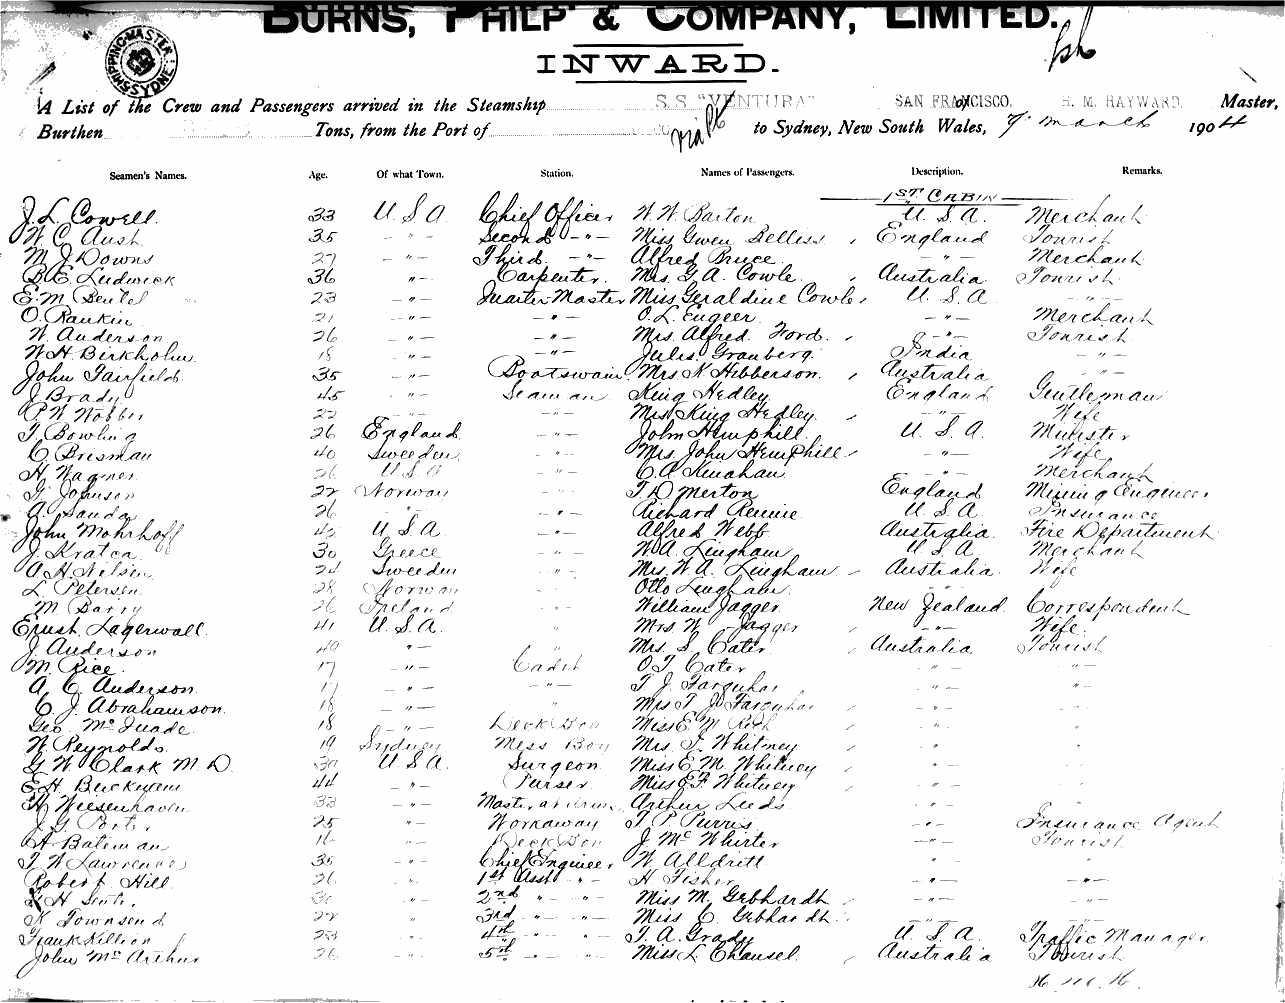 BURNS, PHILP & COMPANY, LIMITED.
INWARD.
SHIPPING MASTER SYDNEY
A List of the Crew and Passengers arrived in the Steamship S.S "VENTURA" SAN FRANCISCO. H. M. HAYWARD. Master,
Burthen Tons, from the Port of to Sydney, New South Wales, 7 March 1904
Seamen's Names. Age. Of what Town. Station. Names of Passengers. Description. Remarks.
1ST CABIN
J. L. Cowell. 33 U.S.A. Chief Officer W. W. Barton U.S.A. Merchant
W. C. Aush 35 - " - Second - " - Miss Gwen Belliss England Tourist
M. J Downs 27 - " - Third. - " - Alfred Bruce - " - Merchant
B. E. Ludwick 36 " - Carpenter. Mrs. G. A. Cowle Australia Tourist
E. M. Beutel 23 - " - Quarter Master Miss Geraldine Cowle U.S.A - " -
O. Rankin 21 - " - - " - O. L. Eugeer - " - Merchant
W. Anderson 26 - " - - " - Mrs. Alfred Ford. - " - Tourist
W. H. Birkholm 18 - " - - " - Jules Granberg India - " -
John Fairfield 35 - " - Boatswain Mrs K Hibberson. Australia - " -
J Brady 45 " - Seaman King Hedley England Gentleman
P. W. Webber 22 - " - - " - Mrs King Hedley - " - Wife
T Bowling 26 England - " - John Hemphill U.S.A. Minister
C Brisman 40 Sweeden - " - Mrs. John Hemphill - " - Wife
H Wagner 26 U.S.A - " - C. A. Kinahan - " - Merchant
G Johnson 22 Norway - " - T. D Merton England Mining Engineer
A. Sanda 26 " - " Richard Rennie U.S.A Insurance
John Mohrhoff 42 U.S.A - " - Alfred Webb Australia Fire Department
J. Kratca 30 Greece - " - W. A. Lingham U.S.A Merchant
A. H. Nilsen 24 Sweeden - " - Mrs. W A. Lingham Australia. Wife
L Petersen 28 Norway - " - Otto Lingham "
M Barry 26 Ireland - " - William Jagger New Zealand Correspondent
Ernst Lagerwall. 41 U.S.A. " Mrs W. Jagger - " - Wife
J. Anderson 40 " - " Mrs. S. Cater Australia Tourist
M. Rice. 17 - " - Cadet O. T. Cater - " - " -
A. C. Anderson. 17 - " - - " - T. J. Farquhar - " - " -
C. J. Abrahamson. 18 - " - " Mrs T J Farquhar - " "
Geo. Mc Quade. 18 - " - Deck Boy Miss E M Rich - " "
W. Reynolds. 19 Sydney Mess Boy Mrs. T. Whitney " "
G W Clark M.D. 30 U.S.A. Surgeon Miss E. M. Whitney - " "
E. H. Buckynem 44 - " - Purser. Miss E. F. Whitney - " "
H Wiesenhaven 33 - " - Master at Arms. Arthur Leeds - " -
J. G. Porter 25 - " - Workaway T. P. Purvis - " - Insurance Agent
A Bateman 16 - " - Deck Boy J. Mc Whirter - " - Tourist
T. W. Lawrence 35 - " - Chief Engineer W Alldritt " "
Robert Hill 26 " 1st Asst - " - H Fisher - " - - " -
H Senter 30 " 2nd " - " - Miss M. Gebhardt " "
K Townsend 22 " 3rd - " - " - Miss C. Gebhardt - " - - " -
Frank Killion 23 " 4th - " - " - T. A. Grady U.S.A. Traffic Manager
John Mc Arthur 26 " 5th - " - " - Miss L Chansel. Australia Tourist